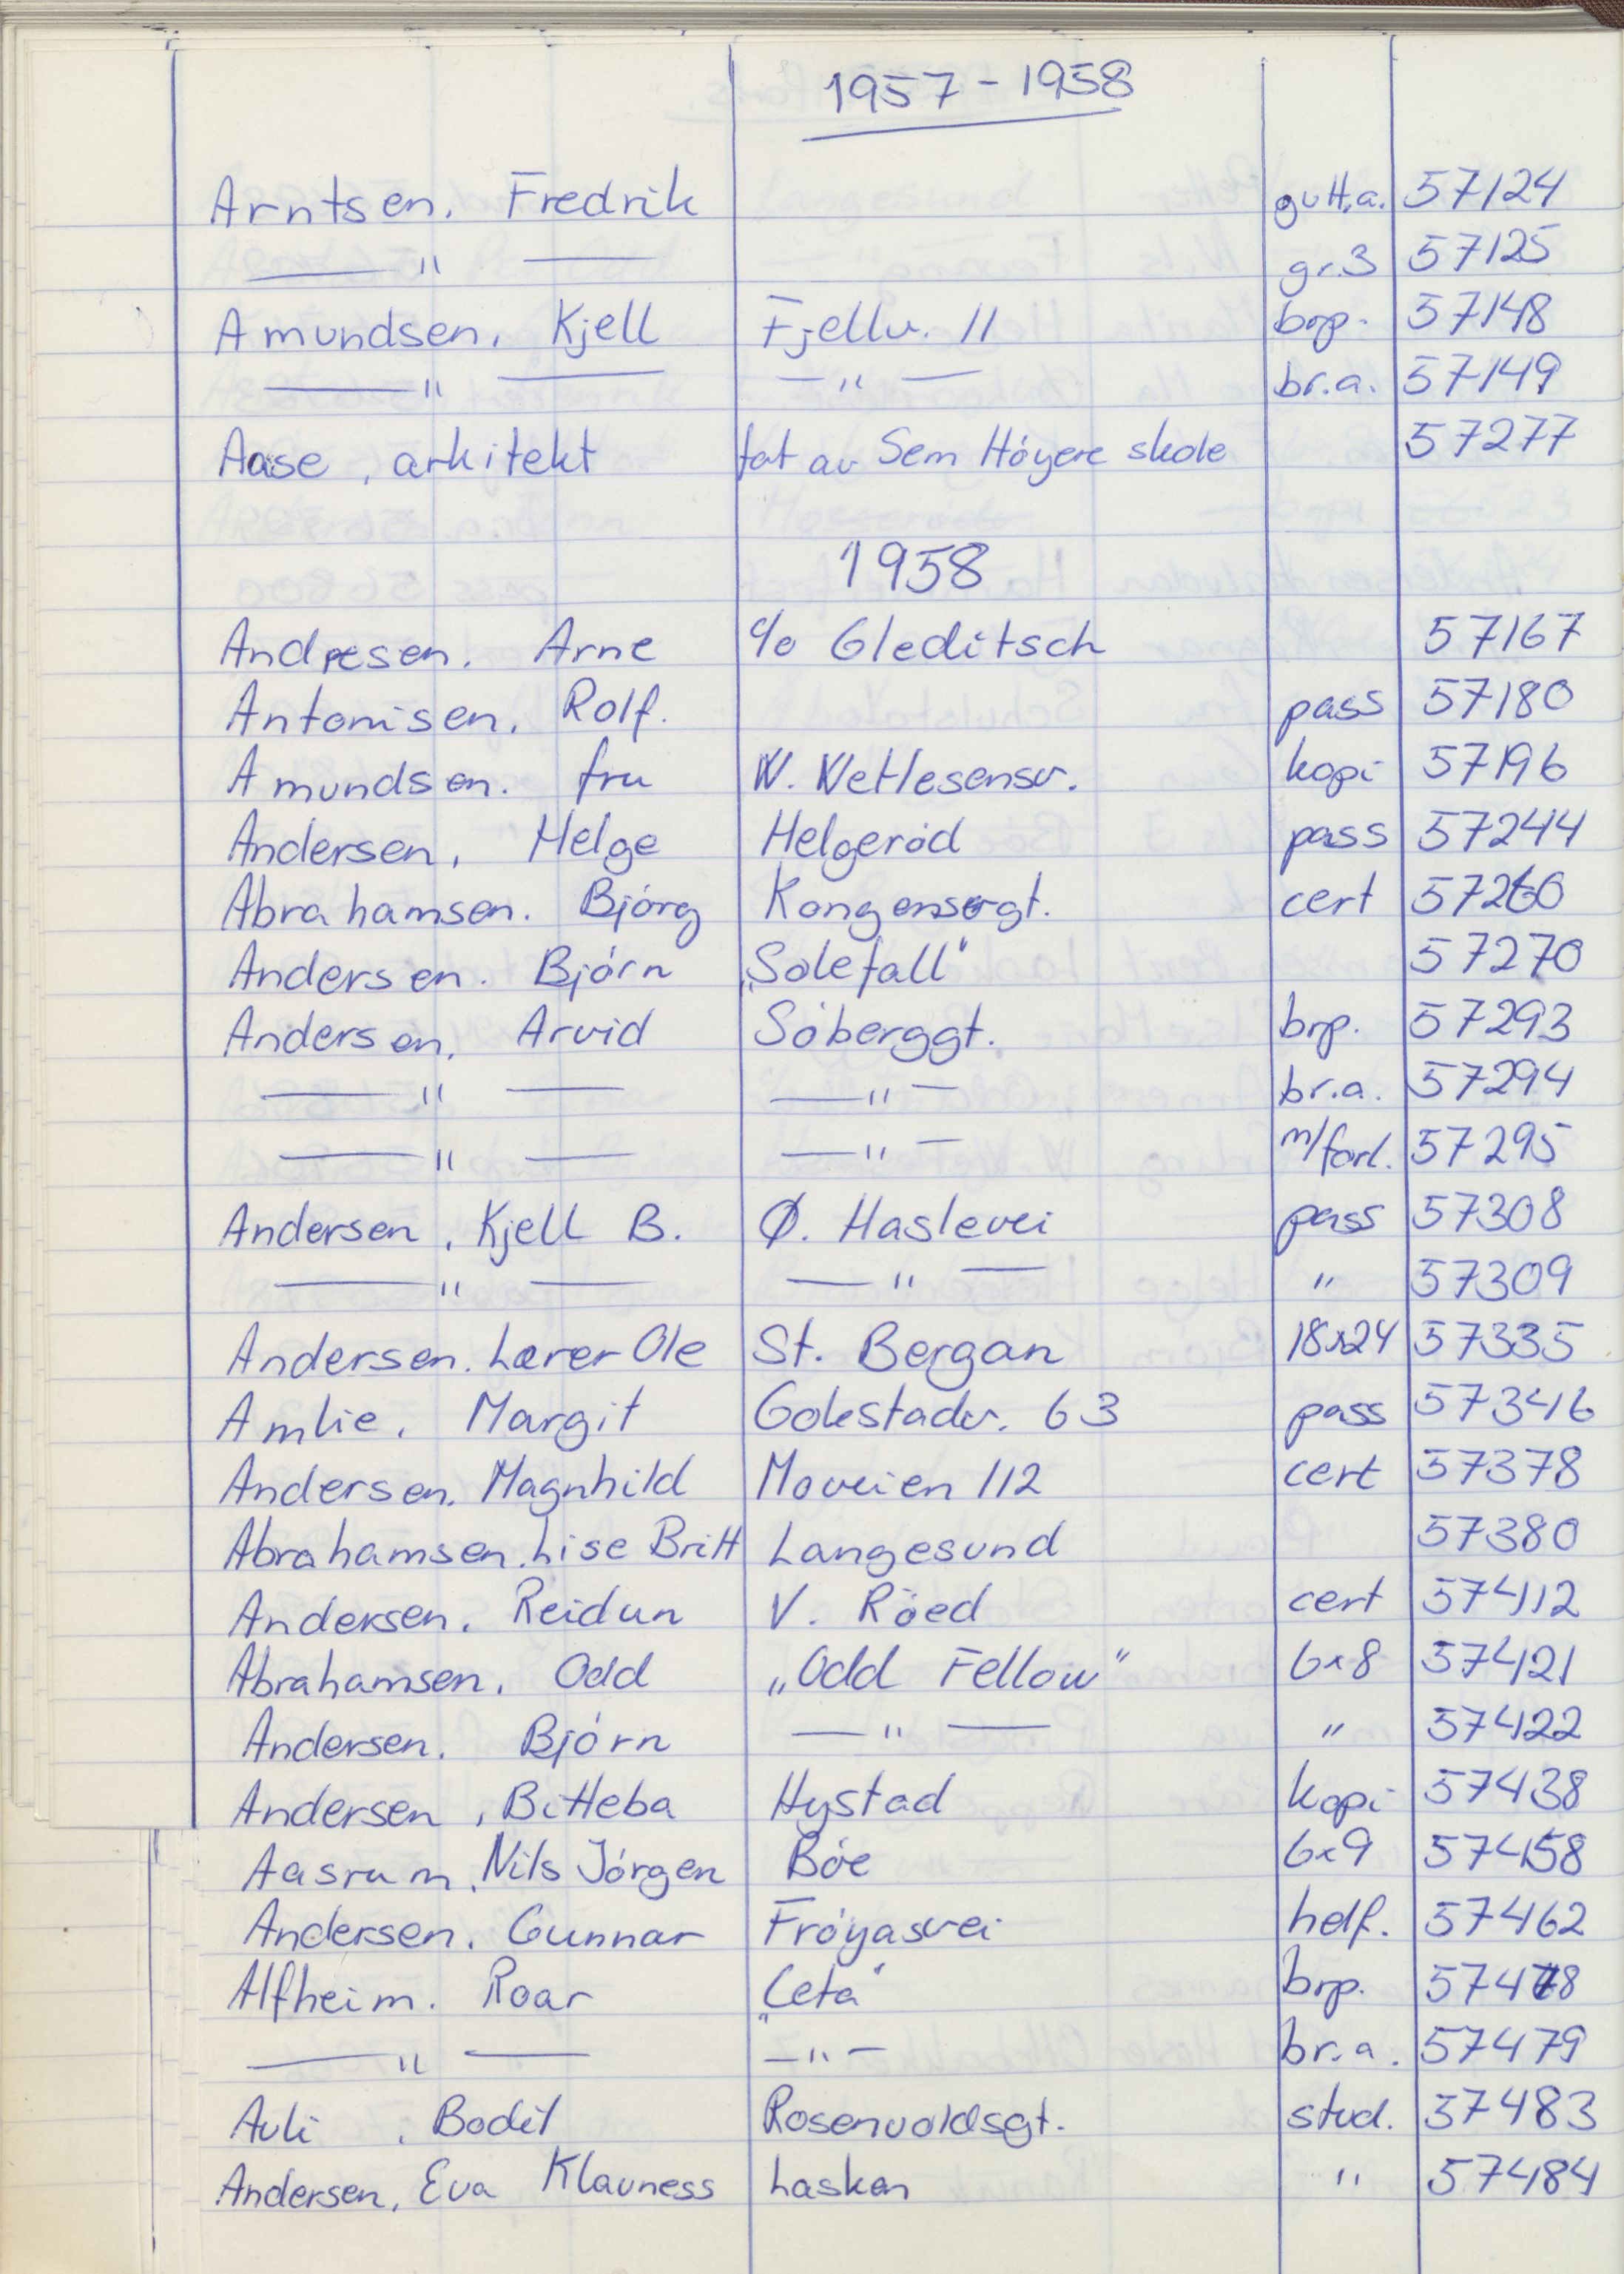 1957 - 1958
Arntsen, Fredrik gutt.a. 57124
—"— gr.3 57125
Amundsen, Kjell Fjellv. 11 brp. 57148
—"— —"— br.a. 57149
Aase, arkitekt tat av Sem Höyere skole 57277
1958
Andresen, Arne c/o Gleditsch 57167
Antonisen, Rolf. pass 57180
Amundsen, fru W. Wetlesensv. kopi 57196
Andersen, Helge Helgeröd pass 57244
Abrahamsen. Björg Kongensgt. cert 57260
Andersen. Björn „Solefall" 57270
Andersen, Arvid Söberggt. brp. 57293
—"— —"— br.a. 57294
—"— —"— m/forl. 57295
Andersen, Kjell B. Ø. Haslevei pass 57308
—"— —"— " 57309
Andersen. Lærer Ole St. Bergan 18x24 57335
Amlie, Margit Gokstadv. 63 pass 57346
Andersen. Magnhild Moveien 112 cert 57378
Abrahamsen. Lise Britt Langesund 57380
Andersen. Reidun V. Röed cert 57412
Abrahamsen. Odd „Odd Fellow" 6x8 57421
Andersen. Björn —"— " 57422
Andersen, Bitteba Hystad kopi 57438
Aasrum, Nils Jörgen Böe 6x9 57458
Andersen. Gunnar Fröyasvei helf. 57462
Alfheim. Roar „Ceta" brp. 57478
—"— —"— br.a. 57479
Auli, Bodil Rosenvoldsgt. stud. 57483
Andersen, Eva Klavness Lasken " 57484